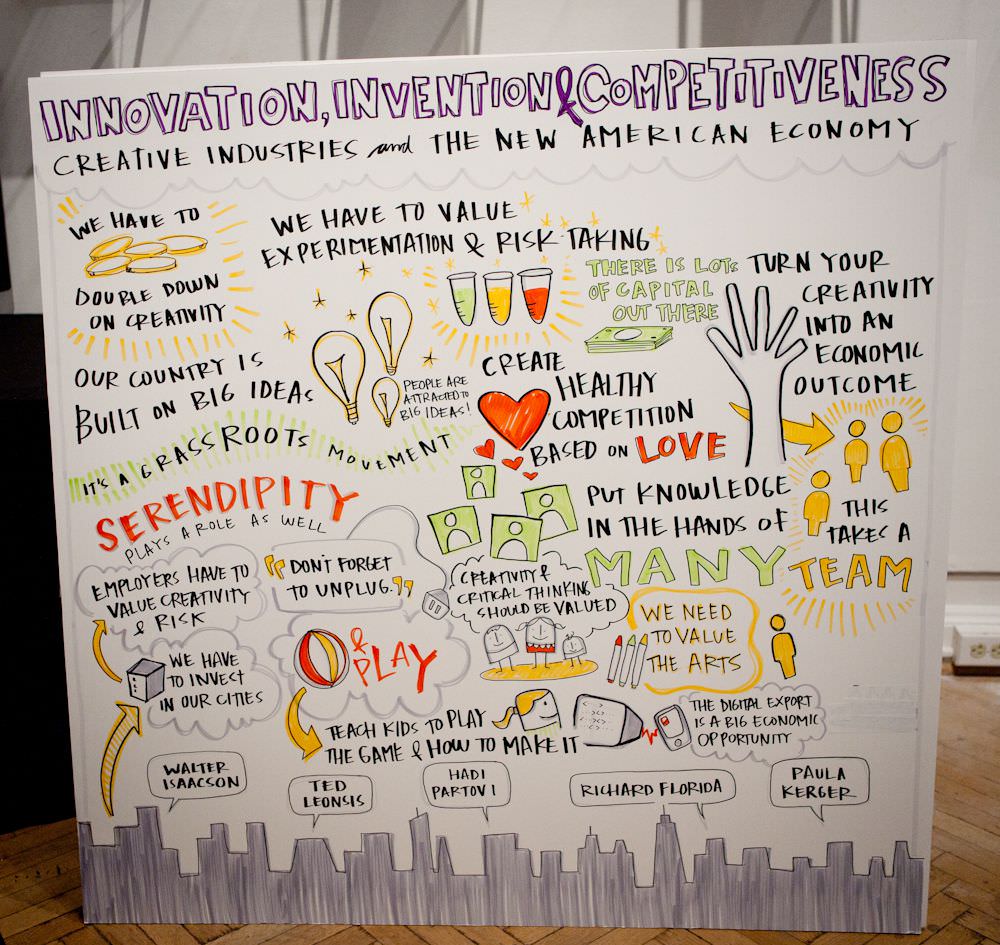 INNOVATION, INVENTION & COMPETITIVENESS
CREATIVE INDUSTRIES and THE NEW AMERICAN ECONOMY
WE HAVE TO
DOUBLE DOWN
ON CREATIVITY
WE HAVE TO VALUE
EXPERIMENTATION & RISK TAKING
THERE IS LOTS
OF CAPITAL
OUT THERE
TURN YOUR
CREATIVITY
INTO AN
ECONOMIC
OUTCOME
OUR COUNTRY IS
BUILT ON BIG IDEAS
PEOPLE ARE
ATTRACTED TO
BIG IDEAS!
CREATE
HEALTHY
COMPETITION
BASED ON LOVE
IT'S A GRASSROOTS MOVEMENT
SERENDIPITY
PLAYS A ROLE AS WELL
PUT KNOWLEDGE
IN THE HANDS OF
MANY
THIS
TAKES A
TEAM
EMPLOYERS HAVE TO
VALUE CREATIVITY
& RISK
"DON'T FORGET
TO UNPLUG."
& PLAY
CREATIVITY &
CRITICAL THINKING
SHOULD BE VALUED
WE NEED
TO VALUE
THE ARTS
WE HAVE
TO INVEST
IN OUR CITIES
TEACH KIDS TO PLAY
THE GAME & HOW TO MAKE IT
THE DIGITAL EXPORT
IS A BIG ECONOMIC
OPPORTUNITY
WALTER
ISAACSON
TED
LEONSIS
HADI
PARTOVI
RICHARD FLORIDA
PAULA
KERGER